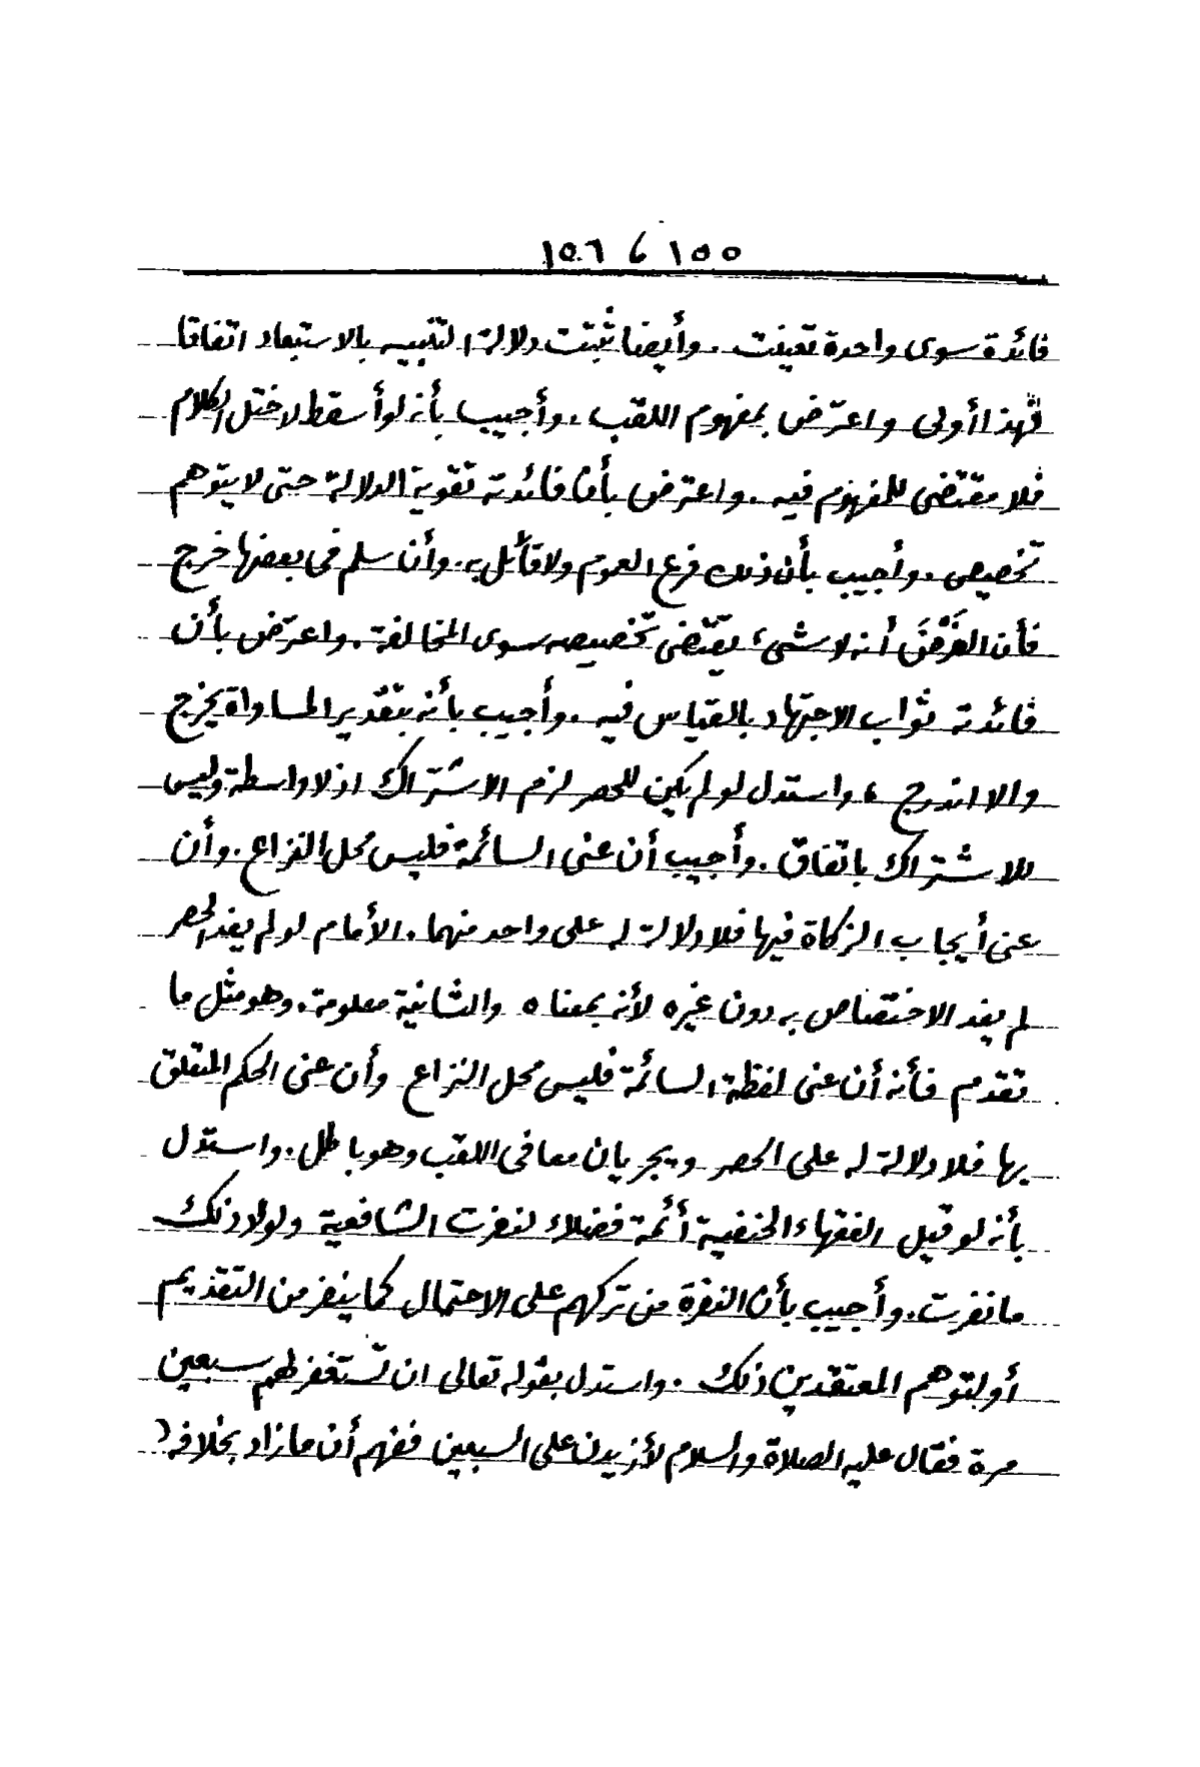 ١٥٥ ، ١٥٦
فائدة سوى واحدة تعينت . وأيضا ثبتت دلالة التنبيه بالاستبعاد اتفاقا
فهذا أولى واعترض بمفهوم اللقب . وأجيب بأنه لو أسقط لاختل الكلام
فلا مقتضى للمفهوم فيه . واعترض بأن فائدته تقوية الدلالة حتى لا يتوهم
تخصيص . وأجيب بأن ذلك فرع العموم ولا قائل به . وأن سلم في بعضها خرج
فأن الفَرْضَ أنه لا شيء يقتضي تخصيصه سوى المخالفة . واعترض بأن
فائدته ثواب الاجتهاد بالقياس فيه . وأجيب بأنه بتقدير المساواة يخرج
والا اندرج ، واستدل لو لم يكن للحصر لزم الاشتراك اذ لا واسطة وليس
للاشتراك باتفاق . وأجيب أن عنى السائمة فليس محل النزاع . وأن
عنى أيجاب الزكاة فيها فلا دلالة له على واحد منهما . الأمام لو لم يفد الحصر
لم يفد الاختصاص به دون غيره لأنه بمعناه والثانية معلومة . وهو مثل ما
تقدم فأنه أن عنى لفظة السائمة فليس محل النزاع وأن عنى الحكم المتعلق
بها فلا دلالة له على الحصر ويجريان معا في اللقب وهو باطل . واستدل
بأنه لو قيل الفقهاء الحنفية أئمة فضلاء لنفرت الشافعية ولولا ذلك
ما نفرت . وأجيب بأن النفرة من تركهم على الاحتمال كما ينفر من التقديم
أو لتوهم المعتقدين ذلك . واستدل بقوله تعالى ان تستغفر لهم سبعين
مرة فقال عليه الصلاة والسلام لأزيدن على السبعين ففهم أن ما زاد بخلافه